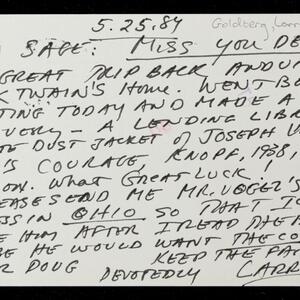 5.25.84
Goldberg, Larr
SAGE: MISS YOU DE
GREAT TRIP BACK AND VI
K TWAIN'S HOME. WENT BO
TING TODAY AND MADE A
VERY — A LENDING LIBR
DUST JACKET OF JOSEPH V
'S COURAGE, KNOPF, 1938,
ON. WHAT GREAT LUCK!
EASE SEND ME MR. VOGEL'S
SS IN OHIO SO THAT I C
E HIM AFTER I READ THE N
BE HE WOULD WANT THE CO
R DOUG KEEP THE FA
DEVOTEDLY LARR